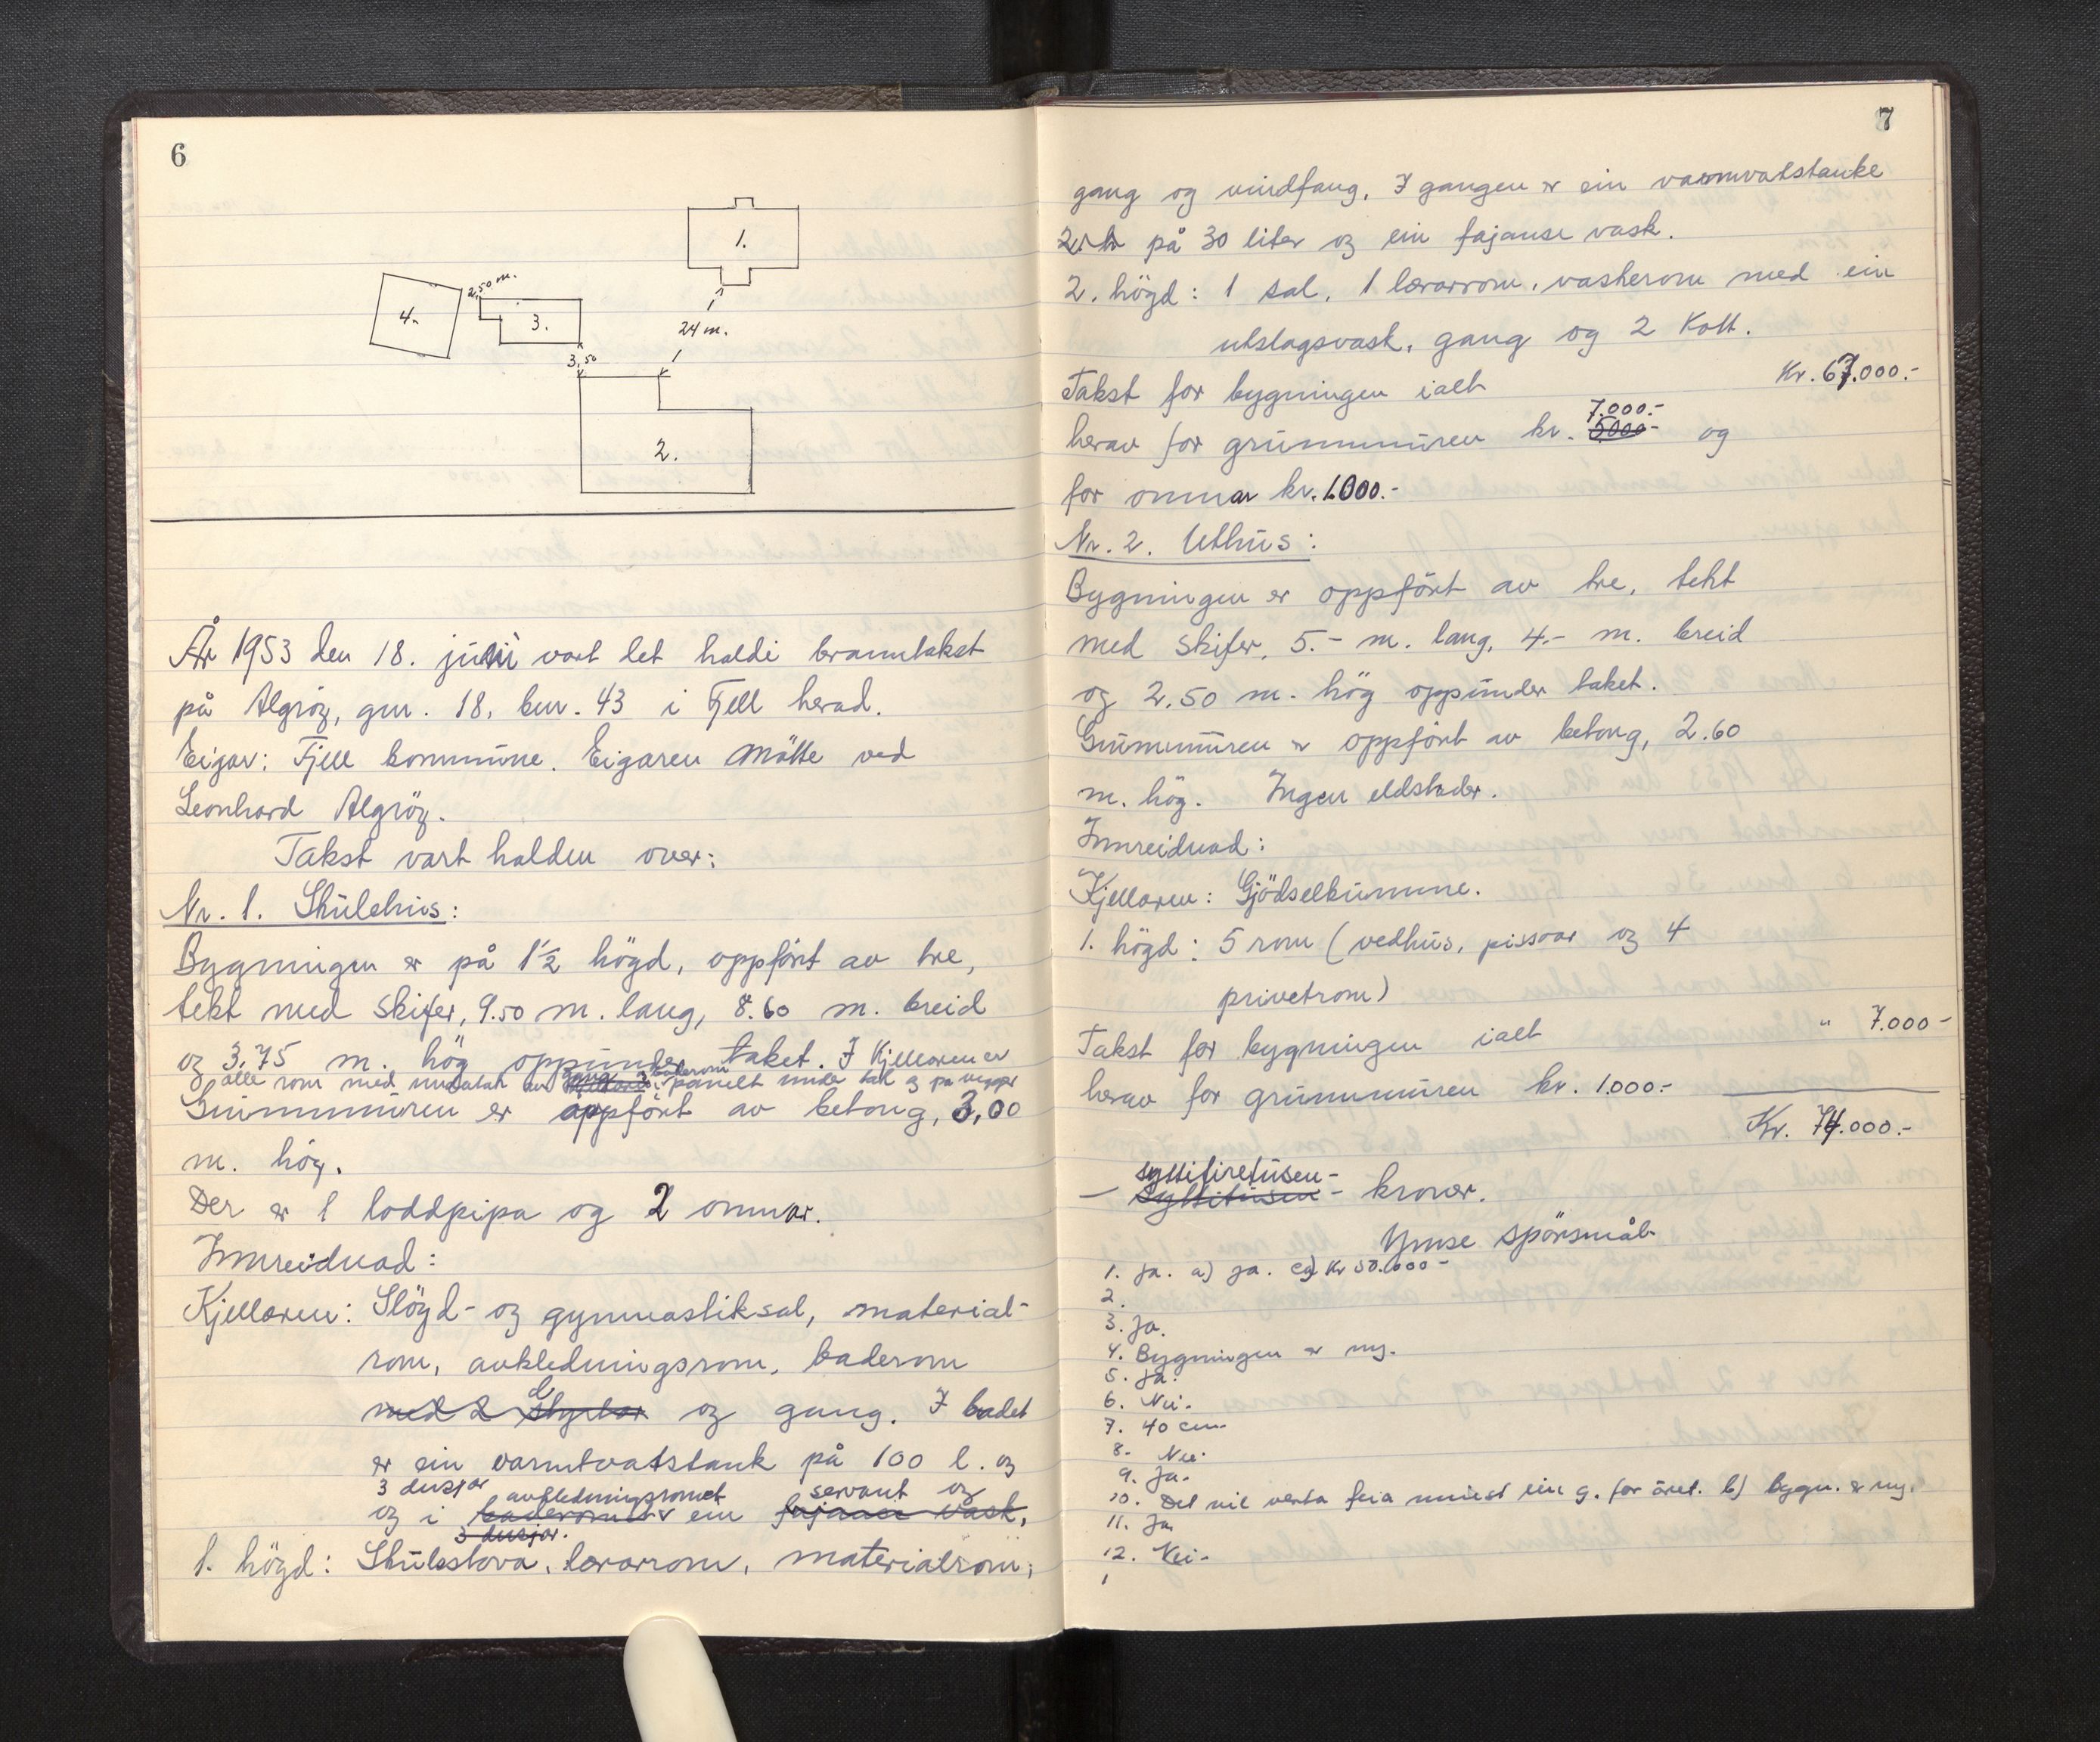 6
1.
2,50 m.
4.
3.
24 m.
3,50
2.
År 1953 den 18. juni vart det haldi branntakst
på Algröy, gnr. 18, bnr. 43 i Fjell herad.
Eigar: Fjell kommune. Eigaren mötte ved
Leonhard Algröy.
Takst vart halden over:
Nr. 1. Skulehus:
Bygningen er på 1½ högd, oppfört av tre,
tekt med skifer, 9.50 m. lang, 8.60 m. breid
og 3.75 m. hög oppunder taket. I Kjellaren er
alle rom med unntak av gang baderom panelt under tak og på vegger
Grunnmuren er oppfört av betong, 3,00
m. hög.
Der er 1 loddpipa og 2 omnar.
Innreidnad:
Kjellaren: Slöyd- og gymnastiksal, material-
rom, avkledningsrom, baderom
med 2 og gang. I badet
er ein varmtvatstank på 100 l. og
3 dusjar avkledningsromet servant og
og i baderomet ein fajanse vask,
3 dusjar.
1. högd: Skulestova, lærarrom, materialrom,
7
gang og vindfang. I gangen er ein varmvatstanke
på 30 liter og ein fajanse vask.
2. högd: 1 sal, 1 lærarrom, vaskerom med ein
utslagsvask, gang og 2 Kott.
Takst for bygningen ialt Kr. 67.000.-
7.000.-
herav for grunnmuren kr. 5000- og
for omnar kr. 1.000.-
Nr. 2. Uthus:
Bygningen er oppfört av tre, tekt
med skifer, 5.- m. lang, 4.- m. breid
og 2.50 m. hög oppunder taket.
Grunnmuren er oppfört av betong, 2.60
m. hög. Ingen eldstader.
Innreidnad:
Kjellaren: Gjödselkumme.
1. högd: 5 rom (vedhus, pissoar og 4
privetrom)
Takst for bygningen ialt " 7.000-
herav for grunnmuren kr. 1.000.-
Kr. 74.000.-
syttifiretusen-
— syttitusen - kroner.
Ymse spörsmål
1. Ja. a) Ja. c) Kr 50.000-
2.
3. Ja.
4. Bygningen er ny.
5. Ja.
6. Nei.
7. 40 cm
8. Nei.
9. Ja.
10. Det vil verta feia minst ein g. for året. b) bygn. er ny.
11. Ja
12. Nei-